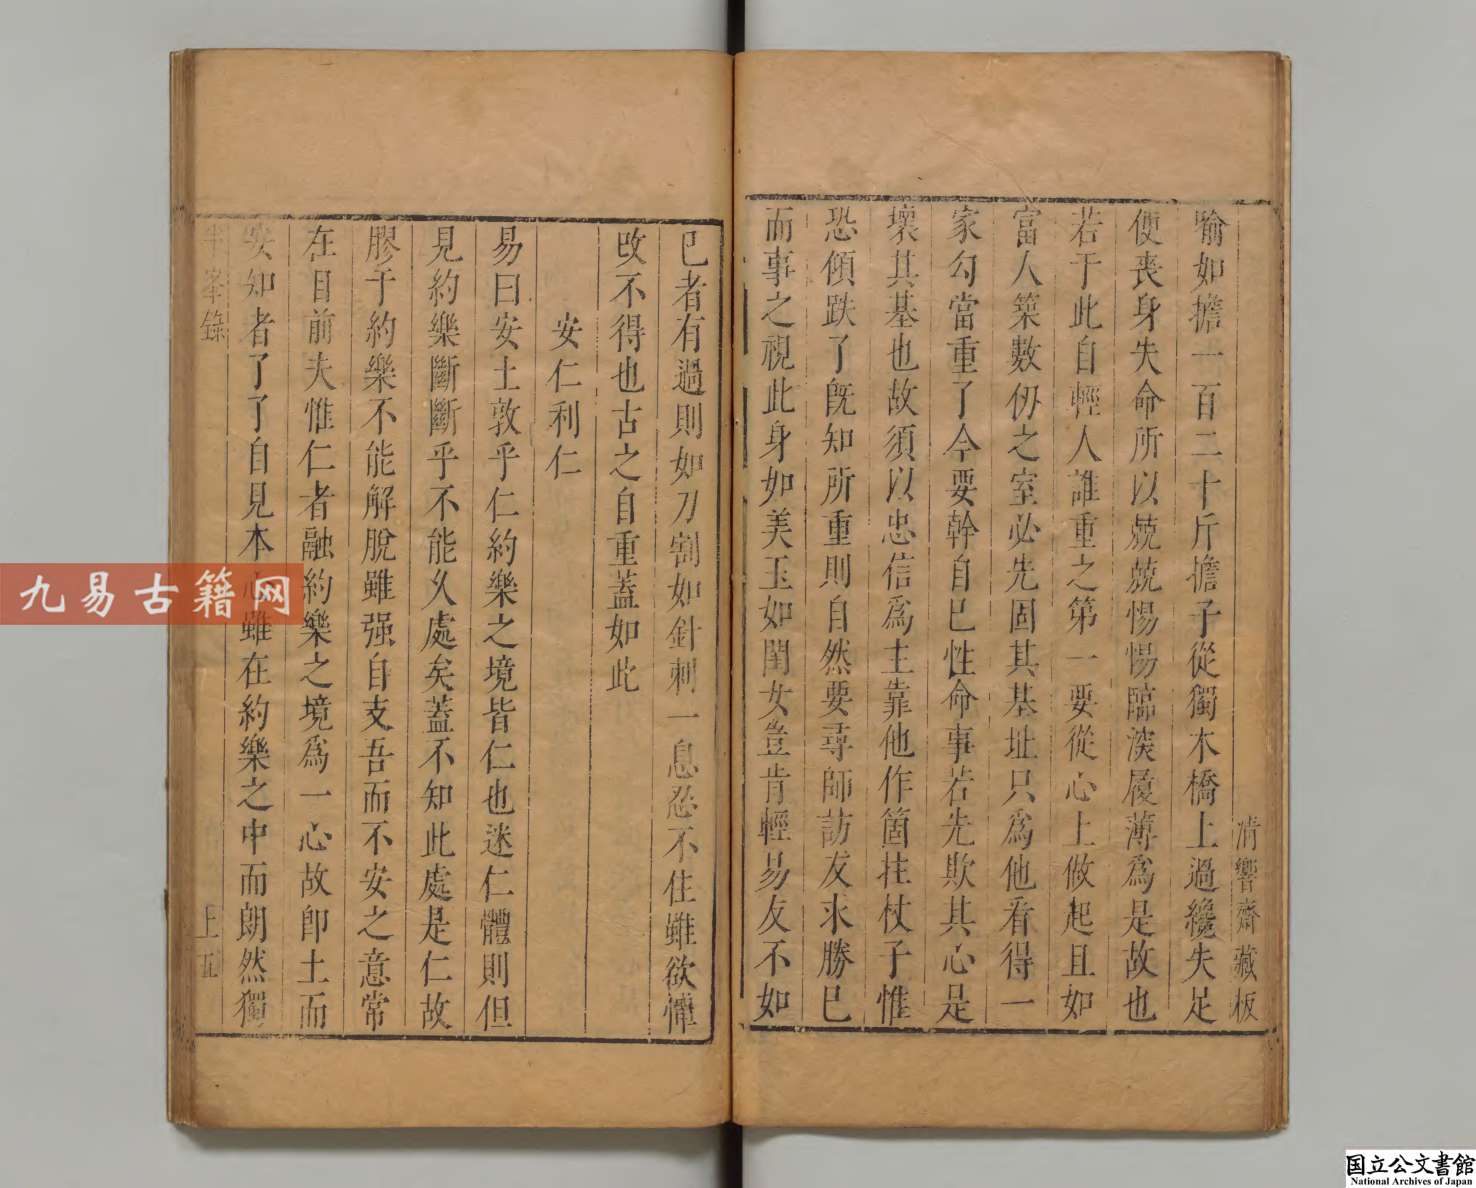 清響齋藏板
喻如擔一百二十斤擔子從獨木橋上過纔失足
便喪身失命所以兢兢惕惕臨深履薄爲是故也
若于此自輕人誰重之第一要從心上做起且如
富人築數仭之室必先固其基址只爲他看得一
家勾當重了今要幹自巳性命事若先欺其心是
壞其基也故須以忠信爲主靠他作箇拄杖子惟
恐傾跌了旣知所重則自然要尋師訪友求勝巳
而事之視此身如美玉如閨女豈肯輕易友不如
巳者有過則如刀割如針刺一息忍不住雖欲憚
改不得也古之自重蓋如此
安仁利仁
易曰安土敦乎仁約樂之境皆仁也迷仁體則但
見約樂斷斷乎不能久處矣蓋不知此處是仁故
膠于約樂不能解脫雖强自支吾而不安之意常
在目前夫惟仁者融約樂之境爲一心故卽土而
安如者了了自見本心雖在約樂之中而朗然獨
峯錄
上五
九易古籍网
国立公文書館
National Archives of Japan